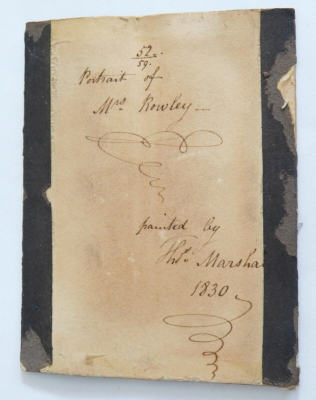 52.
59.
Portrait of
Mrs. Rowley
painted by
Thos. Marsha
1830